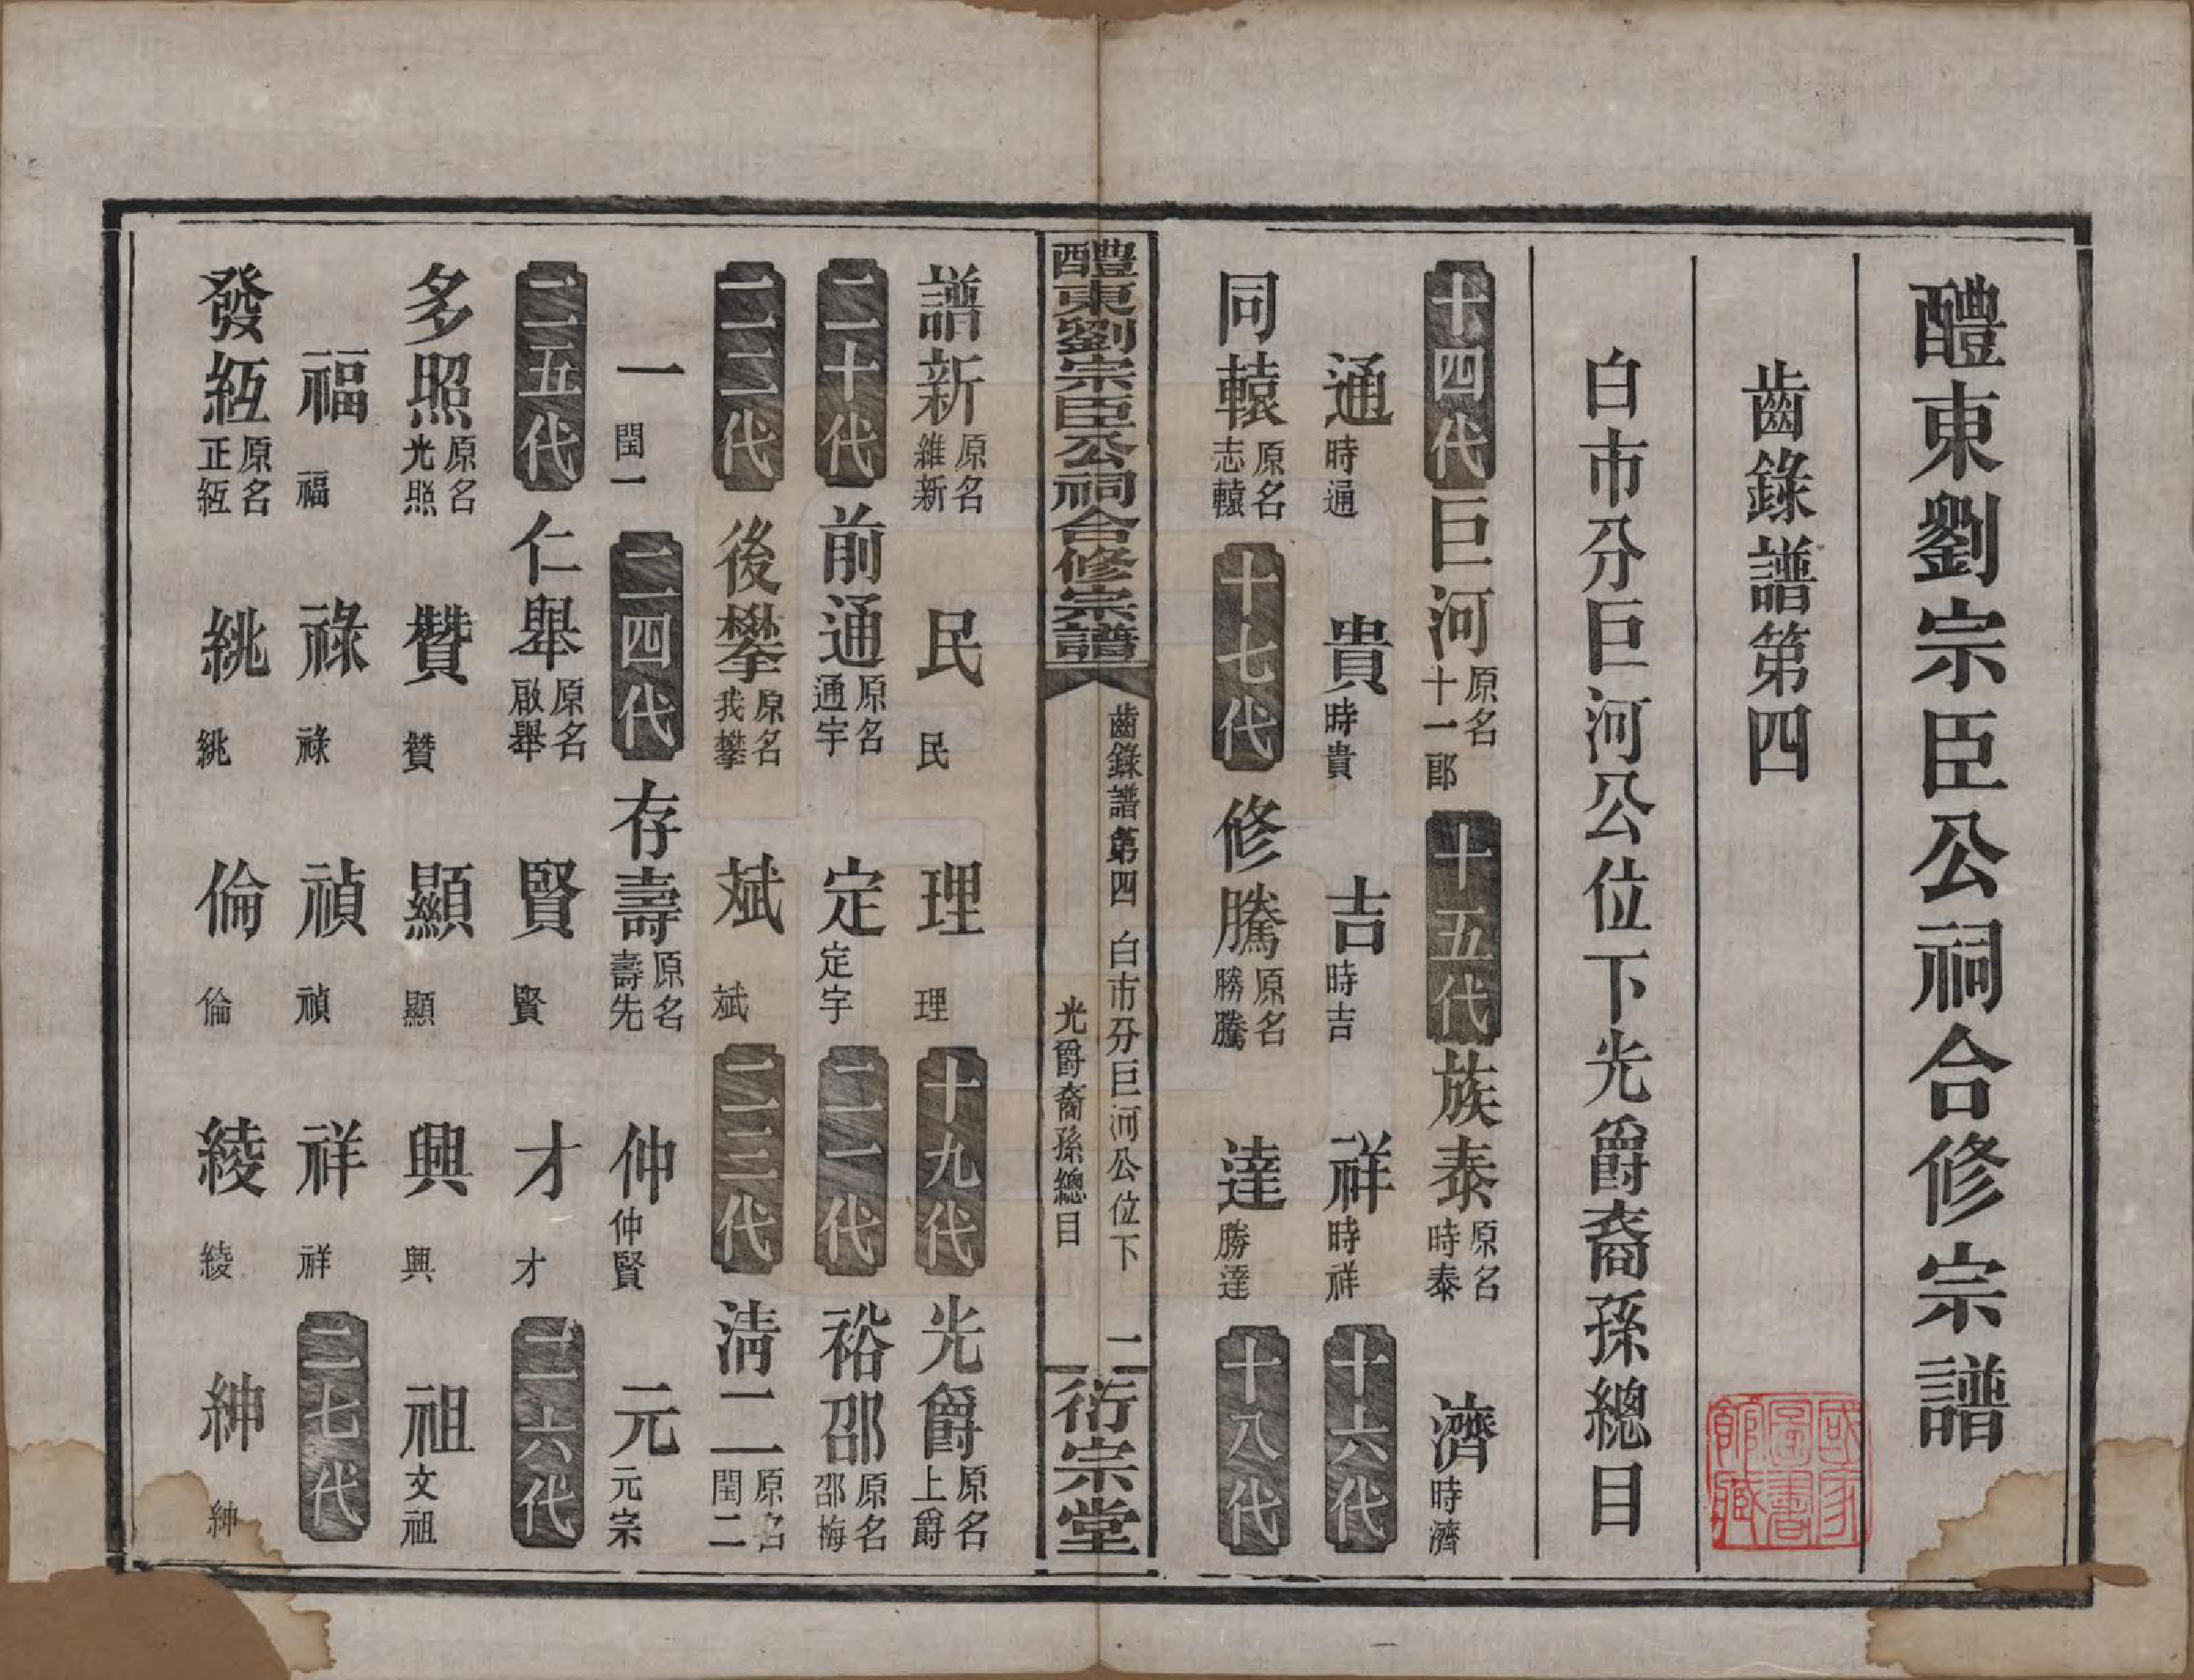 醴東劉宗臣公祠合修宗譜
齒錄譜第四
白市分巨河公位下光爵裔孫總目
十四代 巨河 原名十一郎 十五代 族泰 原名時泰 濟 時濟
通 時通 貴 時貴 吉 時吉 祥 時祥 十六代
同轅 原名志轅 十七代 修騰 原名勝騰 達 勝達 十八代
醴東劉宗臣公祠合修宗譜
齒錄譜第四 白市分巨河公位下
光爵裔孫總目
一
衍宗堂
譜新 原名維新 民 民 理 理 十九代 光爵 原名上爵
二十代 前通 原名通宇 定 定宇 二一代 裕邵 原名邵梅
二二代 後攀 原名我攀 斌 斌 二三代 淸二 原名閏二
一 閏一 二四代 存壽 原名壽先 仲 仲賢 元 元宗
二五代 仁舉 原名啟舉 賢 賢 才 才 二六代
多照 原名光照 贊 贊 顯 顯 興 興 祖 文祖
福 福 祿 祿 禎 禎 祥 祥 二七代
發絚 原名正絚 絩 絩 倫 倫 綾 綾 紳 紳
國家圖書館藏